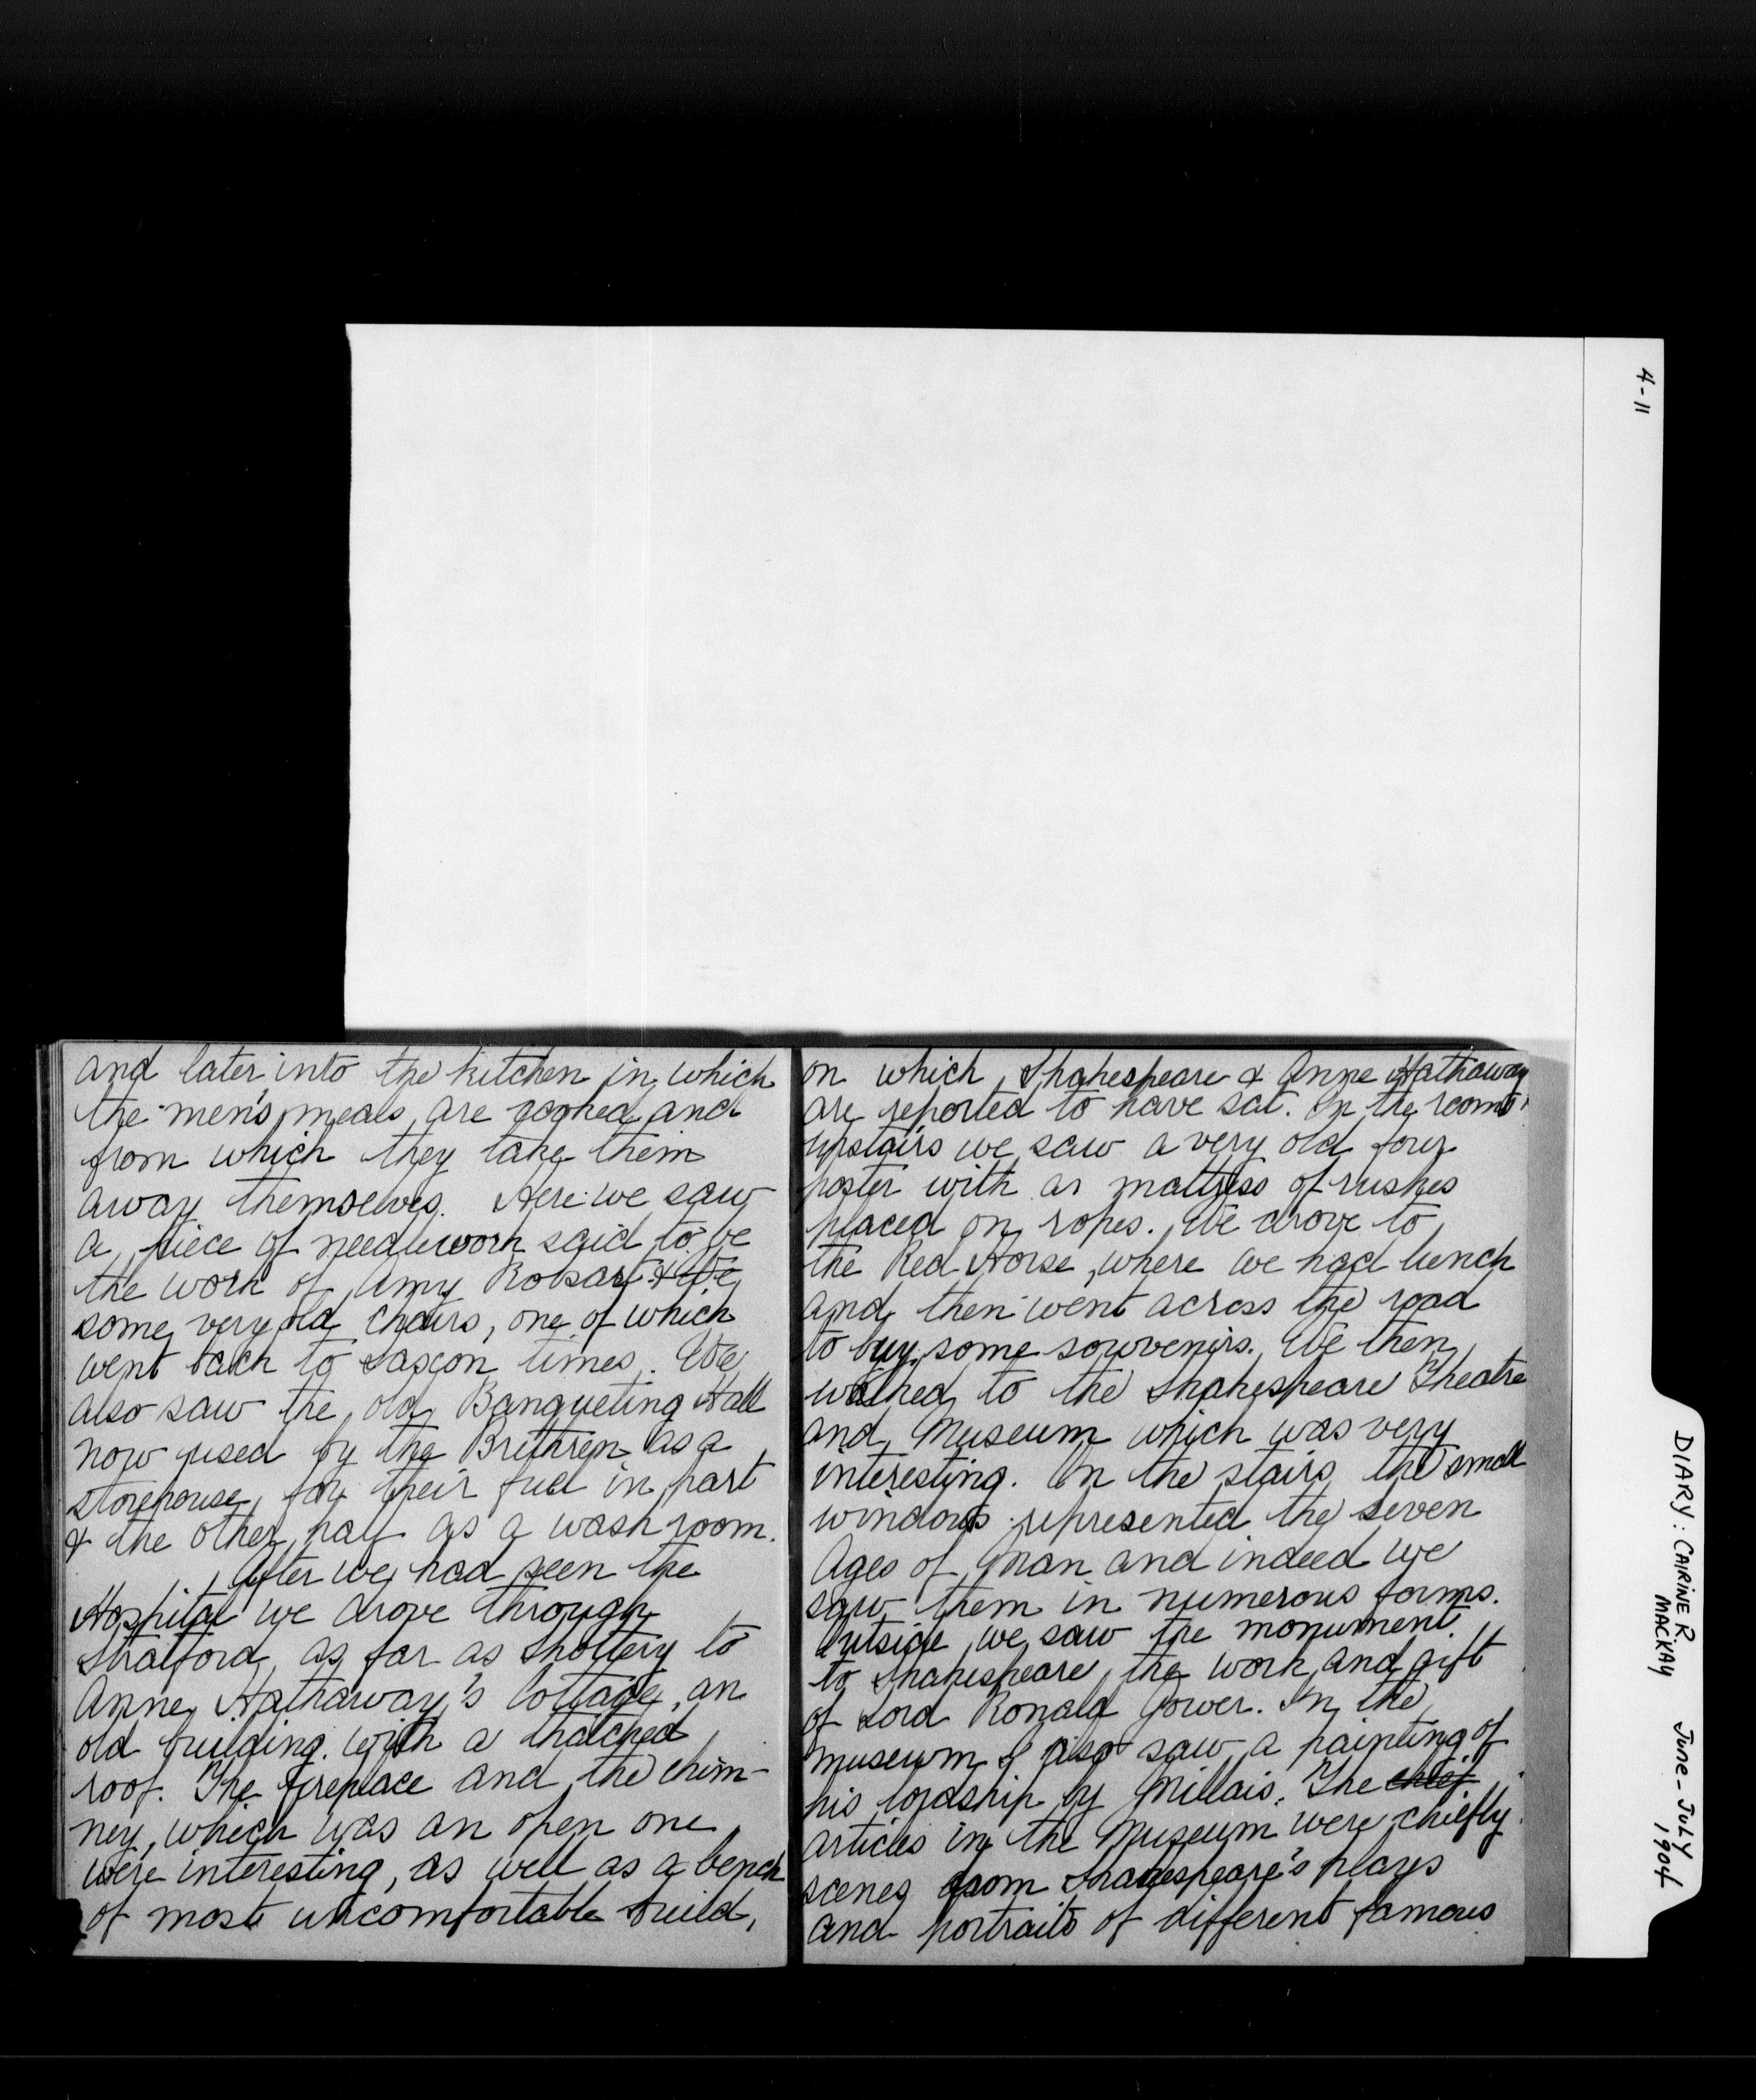 4-11
DIARY: CAIRINE R.
MACKAY
June-July
1904
and later into the kitchen in which
the men's meals are cooked and
from which they take them
away themselves. Here we saw
a piece of needlework said to be
the work of Amy Robsart & We
some very old chairs, one of which
went back to Saxon times. We
also saw the old Banqueting Hall
now used by the Brethren as a
storehouse for their fuel in part
& the other half as a wash room.
After we had seen the
Hospital we drove through
Stratford as far as Shottery to
Anne Hathaway's Cottage, an
old building with a thatched
roof. The fireplace and the chim-
ney, which was an open one
were interesting, as well as a bench
of most uncomfortable build,
on which Shakespeare & Anne Hathaway
are reported to have sat. In the rooms
upstairs we saw a very old four
poster with a mattress of rushes
placed on ropes. We drove to
the Red Horse, where we had lunch
and then went across the road
to buy some souvenirs. We then
walked to the Shakespeare Theatre
and Museum which was very
interesting. On the stairs the small
windows represented the seven
Ages of Man and indeed we
saw them in numerous forms.
Outside we saw the monument
to Shakespeare, the work and gift
of Lord Ronald Gower. In the
museum I also saw a painting of
his lordship by Millais. The chief
articles in the Museum were chiefly
scenes from Shakespeare's plays
and portraits of different famous